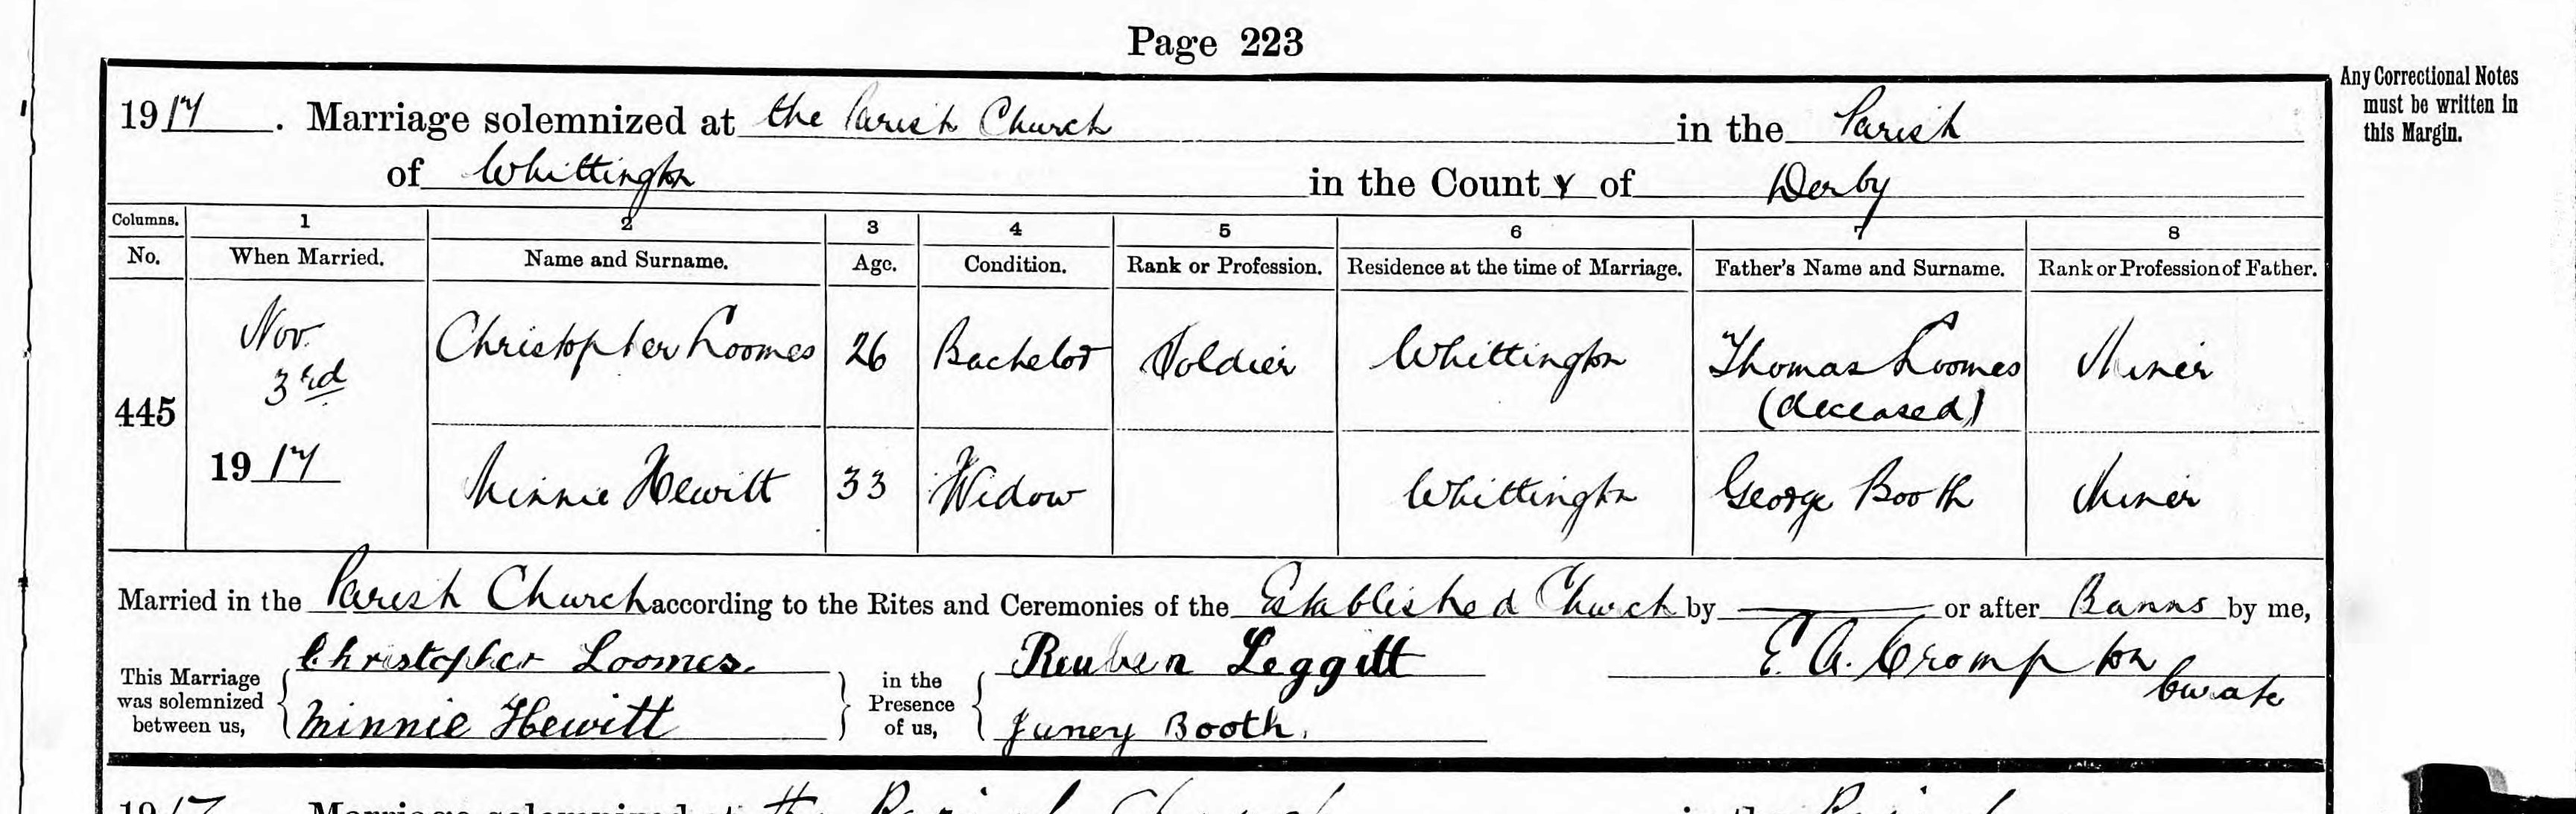 Page 223
Any Correctional Notes
must be written in
this Margin.
1917. Marriage solemnized at the Parish Church in the Parish
of Whittington in the County of Derby
Columns. 1 2 3 4 5 6 7 8
No. When Married. Name and Surname. Age. Condition. Rank or Profession. Residence at the time of Marriage. Father's Name and Surname. Rank or Profession of Father.
445 Nov. 3rd 1917 Christopher Loomes 26 Bachelor Soldier Whittington Thomas Loomes (deceased) Miner
Minnie Hewitt 33 Widow Whittington George Booth Miner
Married in the Parish Church according to the Rites and Ceremonies of the Established Church by or after Banns by me,
This Marriage was solemnized between us, Christopher Loomes. in the Presence of us, Reuben Leggitt E. A. Crompton
Minnie Hewitt Juney Booth. Curate
1917 Marriage solemnized at the Parish Church in the Parish